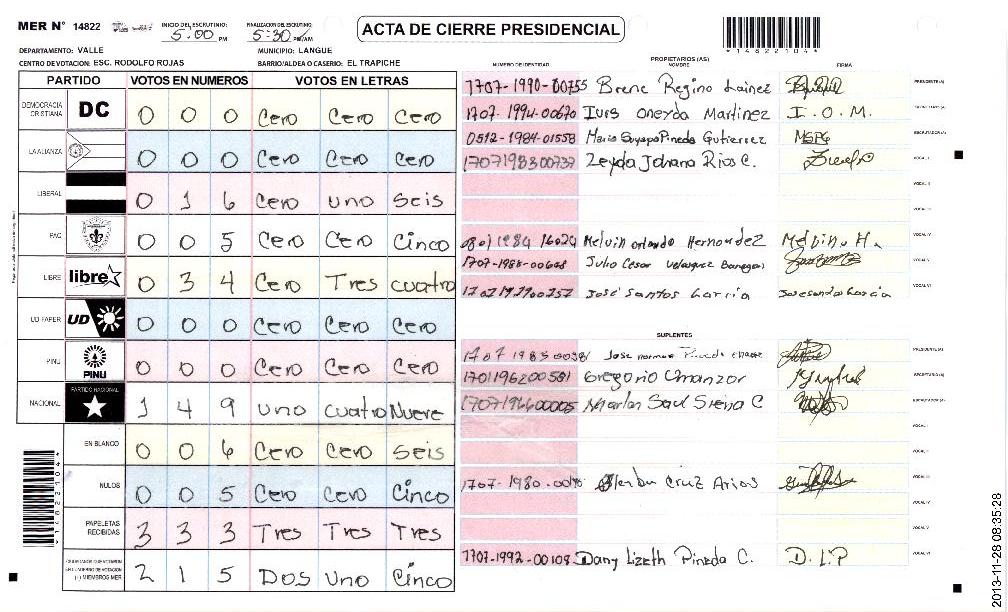 MER N° 14822 INICIO DEL ESCRUTINIO: 5:00 PM FINALIZACION DEL ESCRUTINIO: 5:30 PM/AM ACTA DE CIERRE PRESIDENCIAL *14822104*
DEPARTAMENTO: VALLE MUNICIPIO: LANGUE
CENTRO DE VOTACION: ESC. RODOLFO ROJAS BARRIO/ALDEA O CASERIO: EL TRAPICHE
PARTIDO VOTOS EN NUMEROS VOTOS EN LETRAS
DEMOCRACIA CRISTIANA DC 0 0 0 Cero Cero Cero
LA ALIANZA 0 0 0 Cero Cero Cero
LIBERAL 0 1 6 Cero uno Seis
PAC 0 0 5 Cero Cero Cinco
LIBRE libre 0 3 4 Cero Tres cuatro
UD FAPER UD 0 0 0 Cero Cero Cero
PINU PINU 0 0 0 Cero Cero Cero
NACIONAL PARTIDO NACIONAL 1 4 9 uno cuatro Nueve
EN BLANCO 0 0 6 Cero Cero Seis
NULOS 0 0 5 Cero Cero Cinco
PAPELETAS RECIBIDAS 3 3 3 Tres Tres Tres
CIUDADANOS QUE VOTARON EN CUADERNO DE VOTACION (+) MIEMBROS MER 2 1 5 Dos uno Cinco
*14822104*
PROPIETARIOS (AS)
NUMERO DE IDENTIDAD NOMBRE FIRMA
1707-1990-00755 Regino Lainez PRESIDENTE(A)
1707-1994-00670 Oneyda Martinez I.O.M. SECRETARIO(A)
0512-1984-01558 Gutierrez ESCRUTADOR(A)
1707198300737 Zeyda Johana Rios C. VOCAL I
VOCAL II
VOCAL III
Melvin orlando Hernandez Melvin H. VOCAL IV
Julio Cesar Velasquez VOCAL V
José Santos Garcia VOCAL VI
SUPLENTES
Jose Pineda PRESIDENTE(A)
1701196200581 Gregorio Umanzor SECRETARIO(A)
1707196600005 Marlon Saul C ESCRUTADOR(A)
VOCAL I
VOCAL II
Cruz Arias VOCAL III
VOCAL IV
VOCAL V
1707-1992-00109 Dany Lizeth Pineda C. D.L.P VOCAL VI
2013-11-28 08:35:28